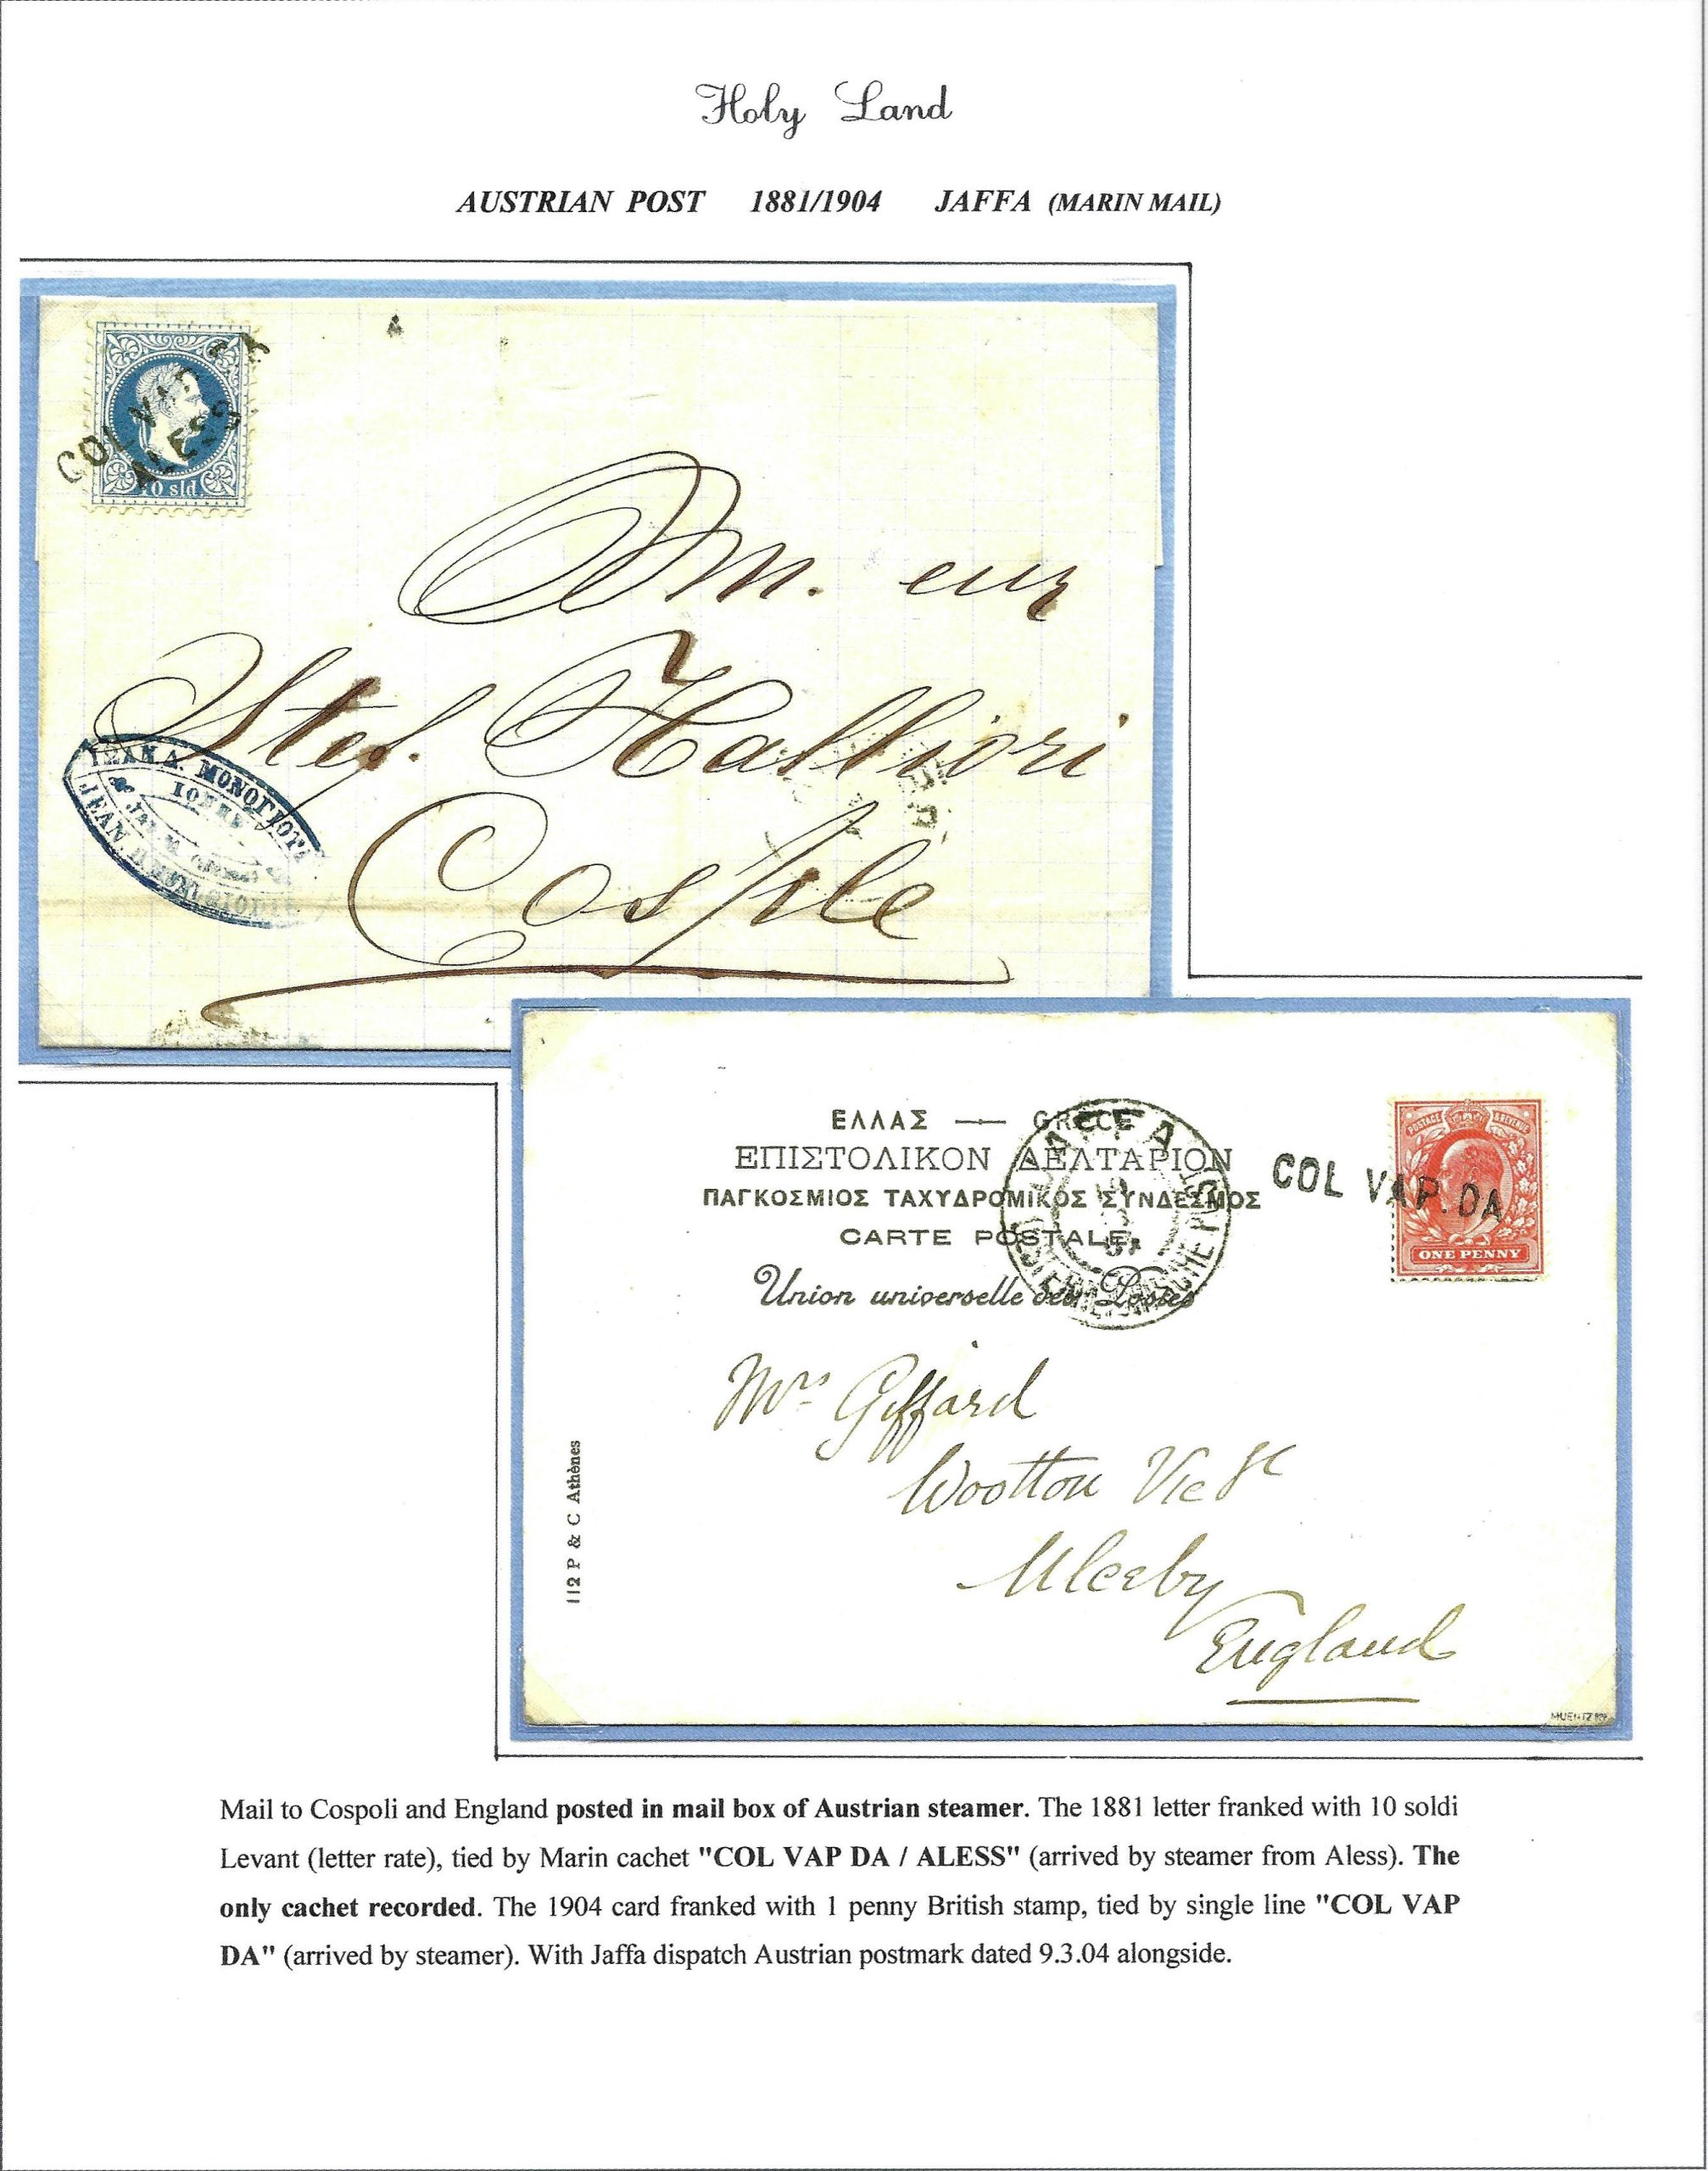 Holy Land
AUSTRIAN POST 1881/1904 JAFFA (MARIN MAIL)
COL VAP DA
ALESS
10 sld.
Stef.
Cosple
JEAN
ΕΛΛΑΣ — GRÈCE
ΕΠΙΣΤΟΛΙΚΟΝ ΔΕΛΤΑΡΙΟΝ
ΠΑΓΚΟΣΜΙΟΣ ΤΑΧΥΔΡΟΜΙΚΟΣ ΣΥΝΔΕΣΜΟΣ
CARTE POSTALE
Union universelle des Postes
JAFFA
POSTAGE REVENUE
COL VAP. DA
ONE PENNY
Mrs Giffard
Wootton Vic
Ulceby
England
112 P & C Athènes
Mail to Cospoli and England posted in mail box of Austrian steamer. The 1881 letter franked with 10 soldi
Levant (letter rate), tied by Marin cachet "COL VAP DA / ALESS" (arrived by steamer from Aless). The
only cachet recorded. The 1904 card franked with 1 penny British stamp, tied by single line "COL VAP
DA" (arrived by steamer). With Jaffa dispatch Austrian postmark dated 9.3.04 alongside.